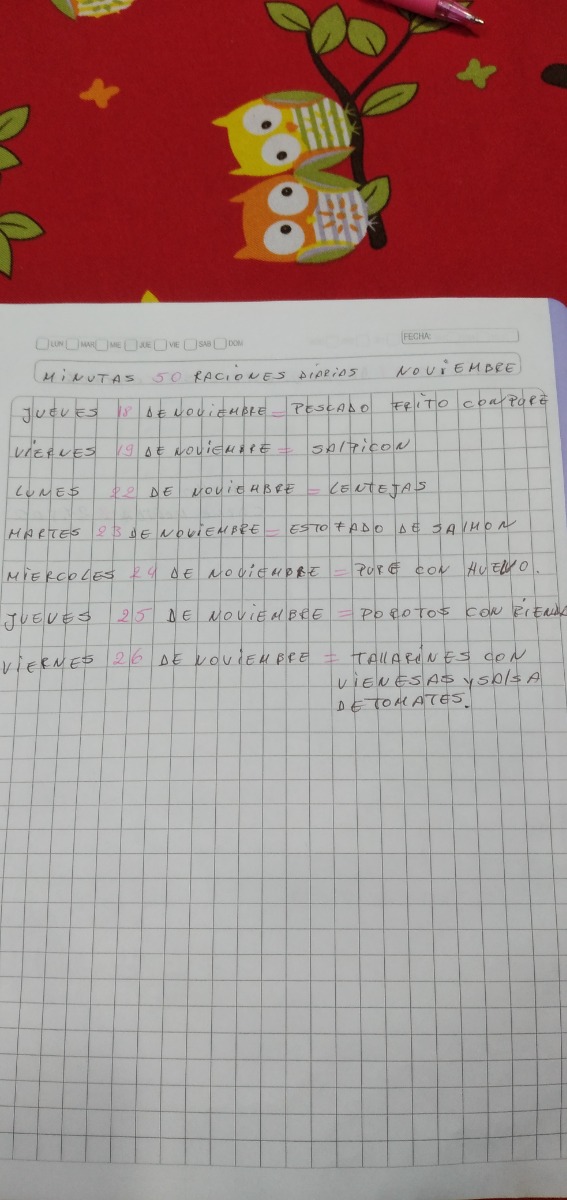 LUN MAR MIE JUE VIE SAB DOM
FECHA:
MINUTAS 50 RACIONES DIARIAS NOVIEMBRE
JUEVES 18 DE NOVIEMBRE = PESCADO FRITO CON PURÉ
VIERNES 19 DE NOVIEMBRE = SALPICON
LUNES 22 DE NOVIEMBRE = LENTEJAS
MARTES 23 DE NOVIEMBRE = ESTOFADO DE SALMON
MIERCOLES 24 DE NOVIEMBRE = PURÉ CON HUEVO.
JUEVES 25 DE NOVIEMBRE = POROTOS CON
VIERNES 26 DE NOVIEMBRE = TALLARINES CON
VIENESAS Y SALSA
DE TOMATES.